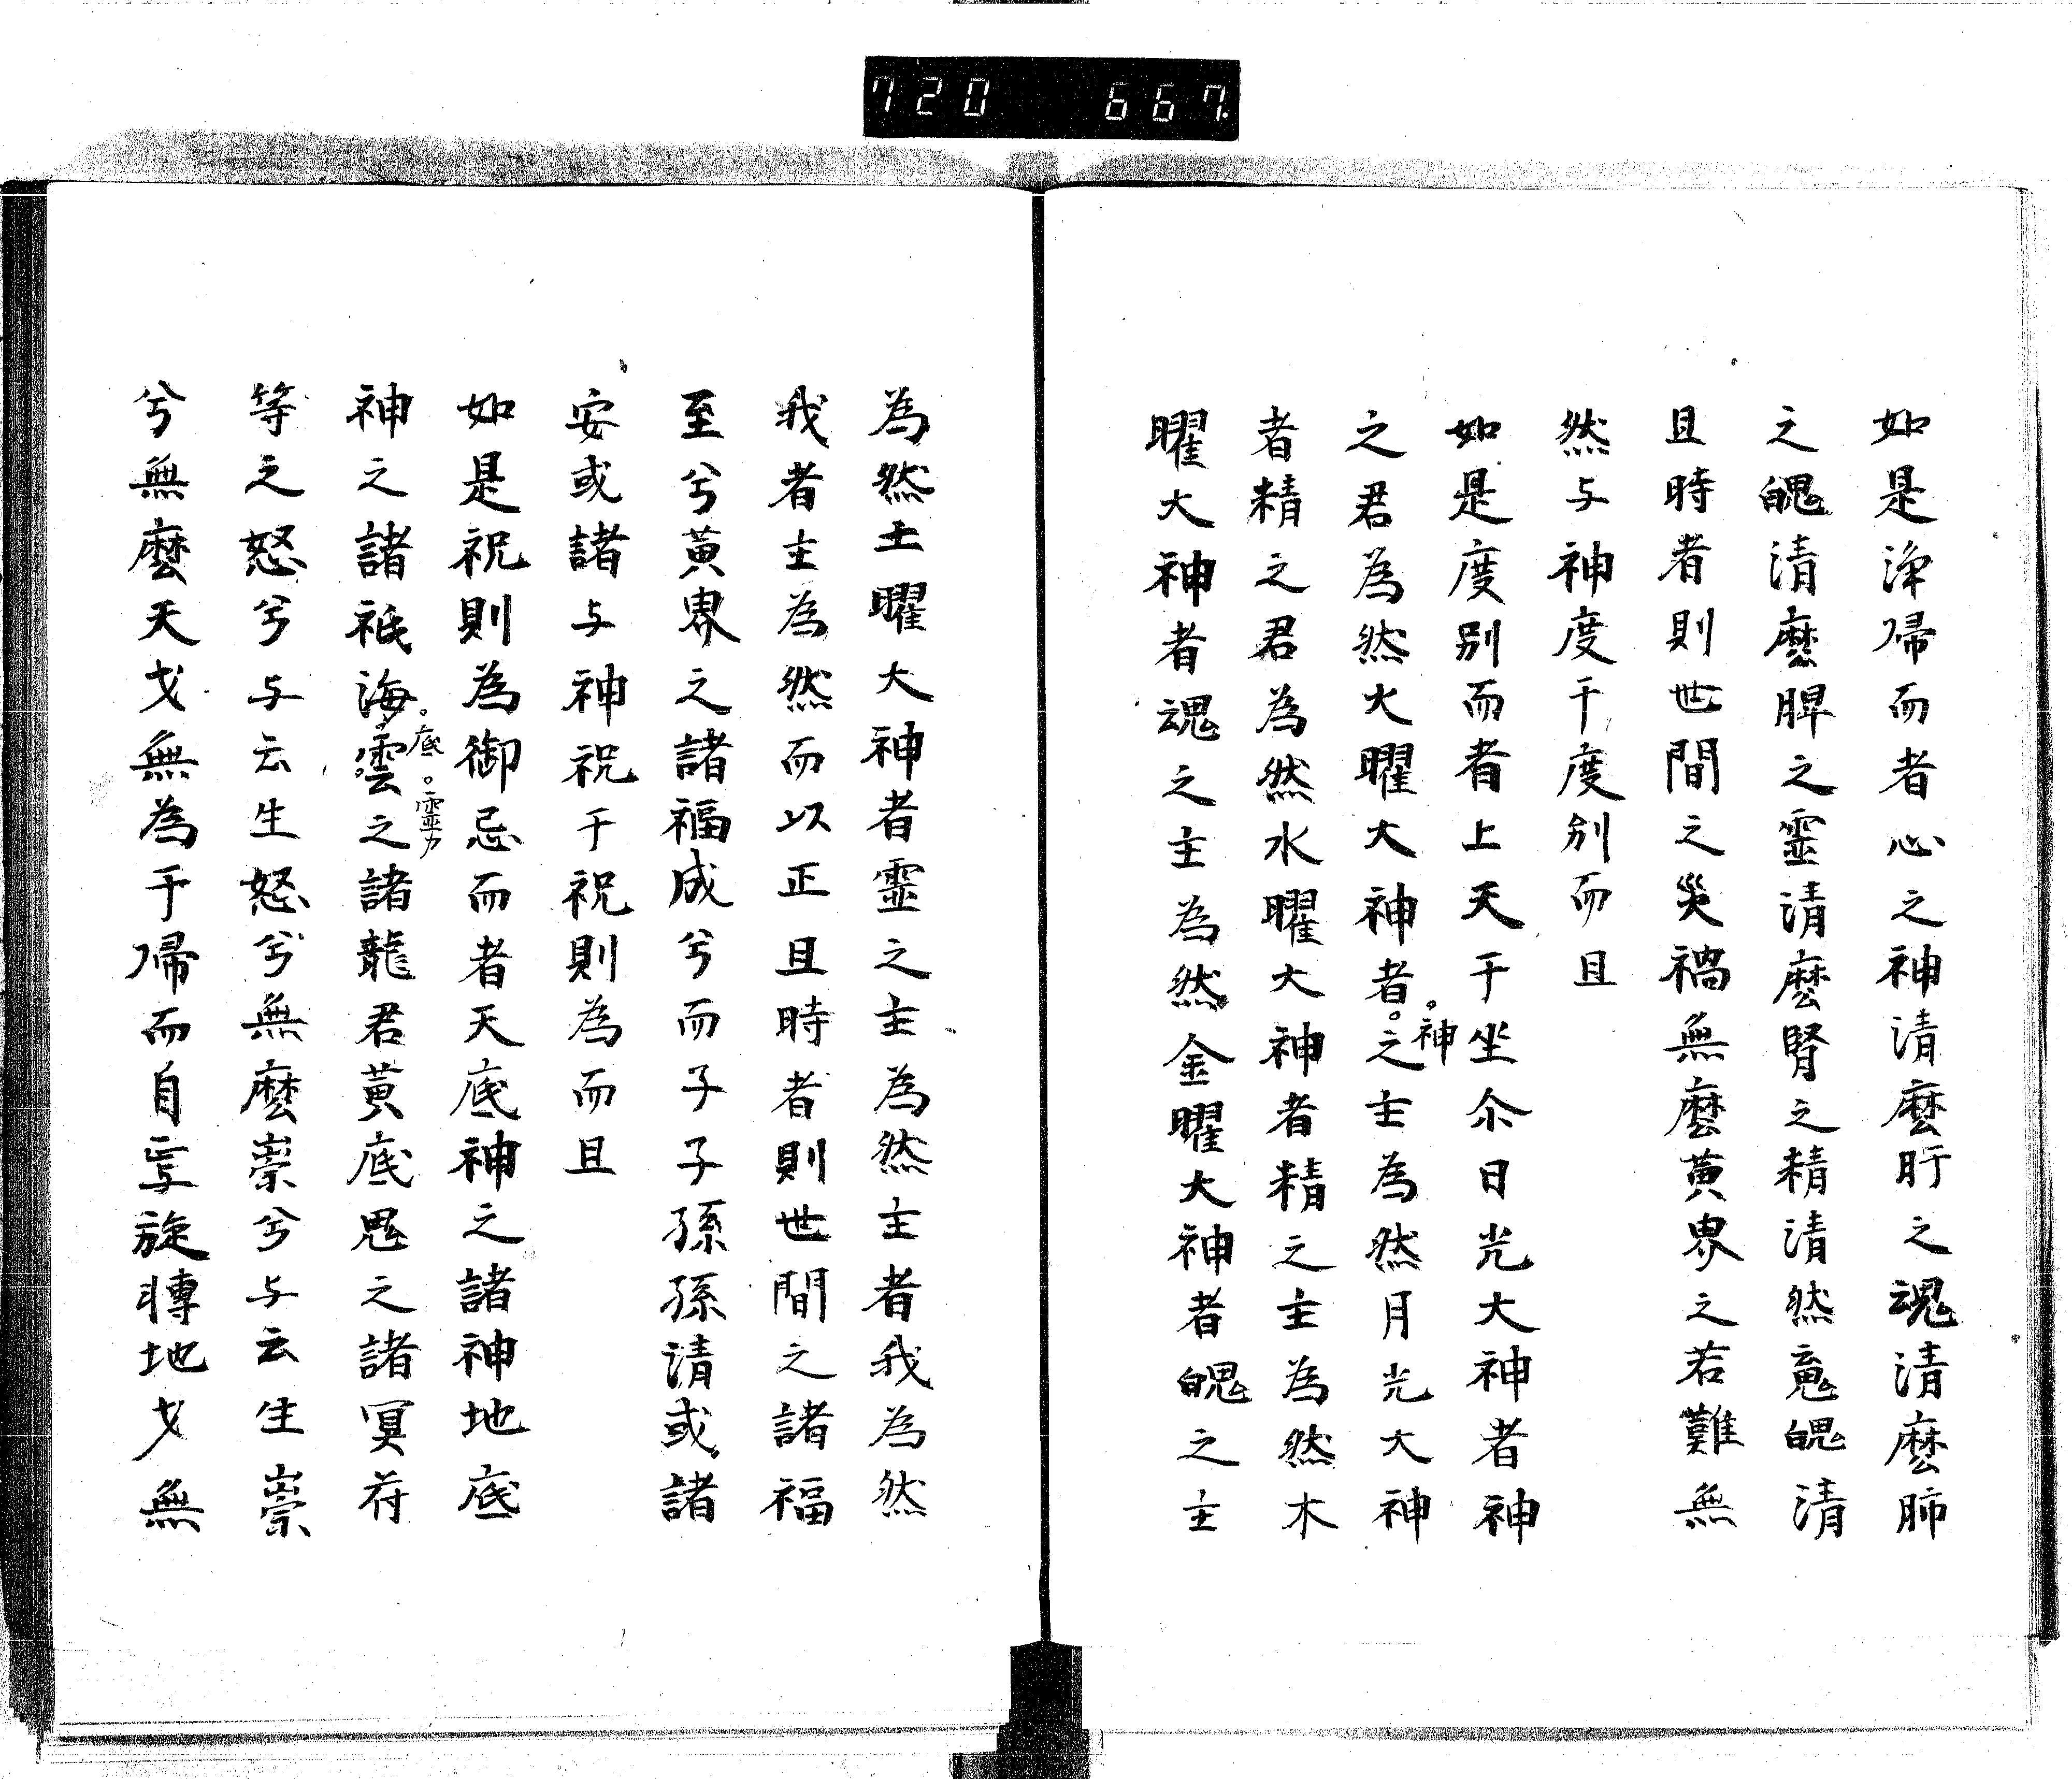 720 667
如是浄帰而者心之神清麼肝之魂清麼肺
之魄清麼脾之霊清麼腎之精清然䰟魄清
且時者則世間之災禍無麼黄界之若難無
然与神度千度別而且
如是度別而者上天于坐尒日光大神者神
之君為然火曜大神者。之主為然月光大神
。神
者精之君為然水曜大神者精之主為然木
曜大神者魂之主為然金曜大神者魄之主
為然土曜大神者霊之主為然主者我為然
我者主為然而以正且時者則世間之諸福
至兮黄界之諸福成兮而子子孫孫清或諸
安或諸与神祝于祝則為而且
如是祝則為御忌而者天底神之諸神地底
神之諸祇海雲之諸龍君黄底鬼之諸冥府
。底 。霊カ
等之怒兮与云生怒兮無麼崇兮与云生崇
兮無麼天戈無為于帰而自旋轉地戈無